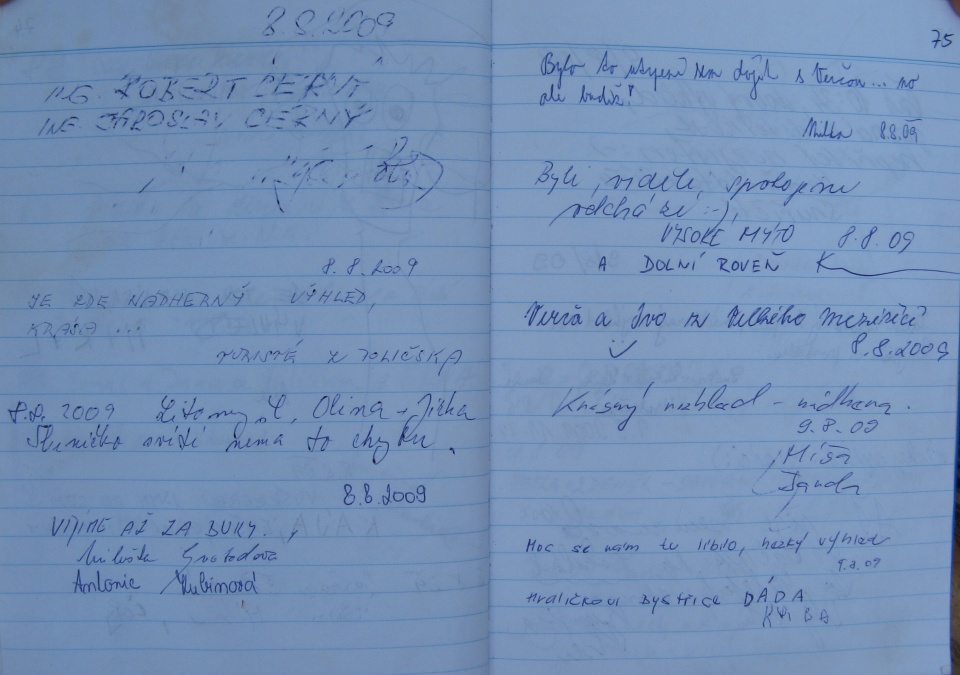 8.8.2009
ING. ROBERT ČERNÝ
ING. JAROSLAV ČERNÝ
8.8.2009
JE ZDE NÁDHERNÝ VÝHLED,
KRÁSA ...
TURISTÉ Z POLIČSKA
8.8. 2009 Litomyšl, Olina + Jitka
Sluníčko svítí nemá to chybu.
8.8.2009
VIDÍME AŽ ZA BUKY.
Miluška Svobodová
Antonie Kubínová
75
Bylo to
ale budiž!
Milka 8.8.09
Byli, viděli, spokojeni
odchází :-),
VYSOKÉ MÝTO 8.8.09
A DOLNÍ ROVEŇ
Verča a Ivo z Velkého Meziříčí
8.8.2009
Krásný rozhled - nádhera.
9.8.09
Míša
Janda
Moc se nám tu líbilo, hezký výhled
9.8.09
Hraličkovi BYSTŘICE DÁDA